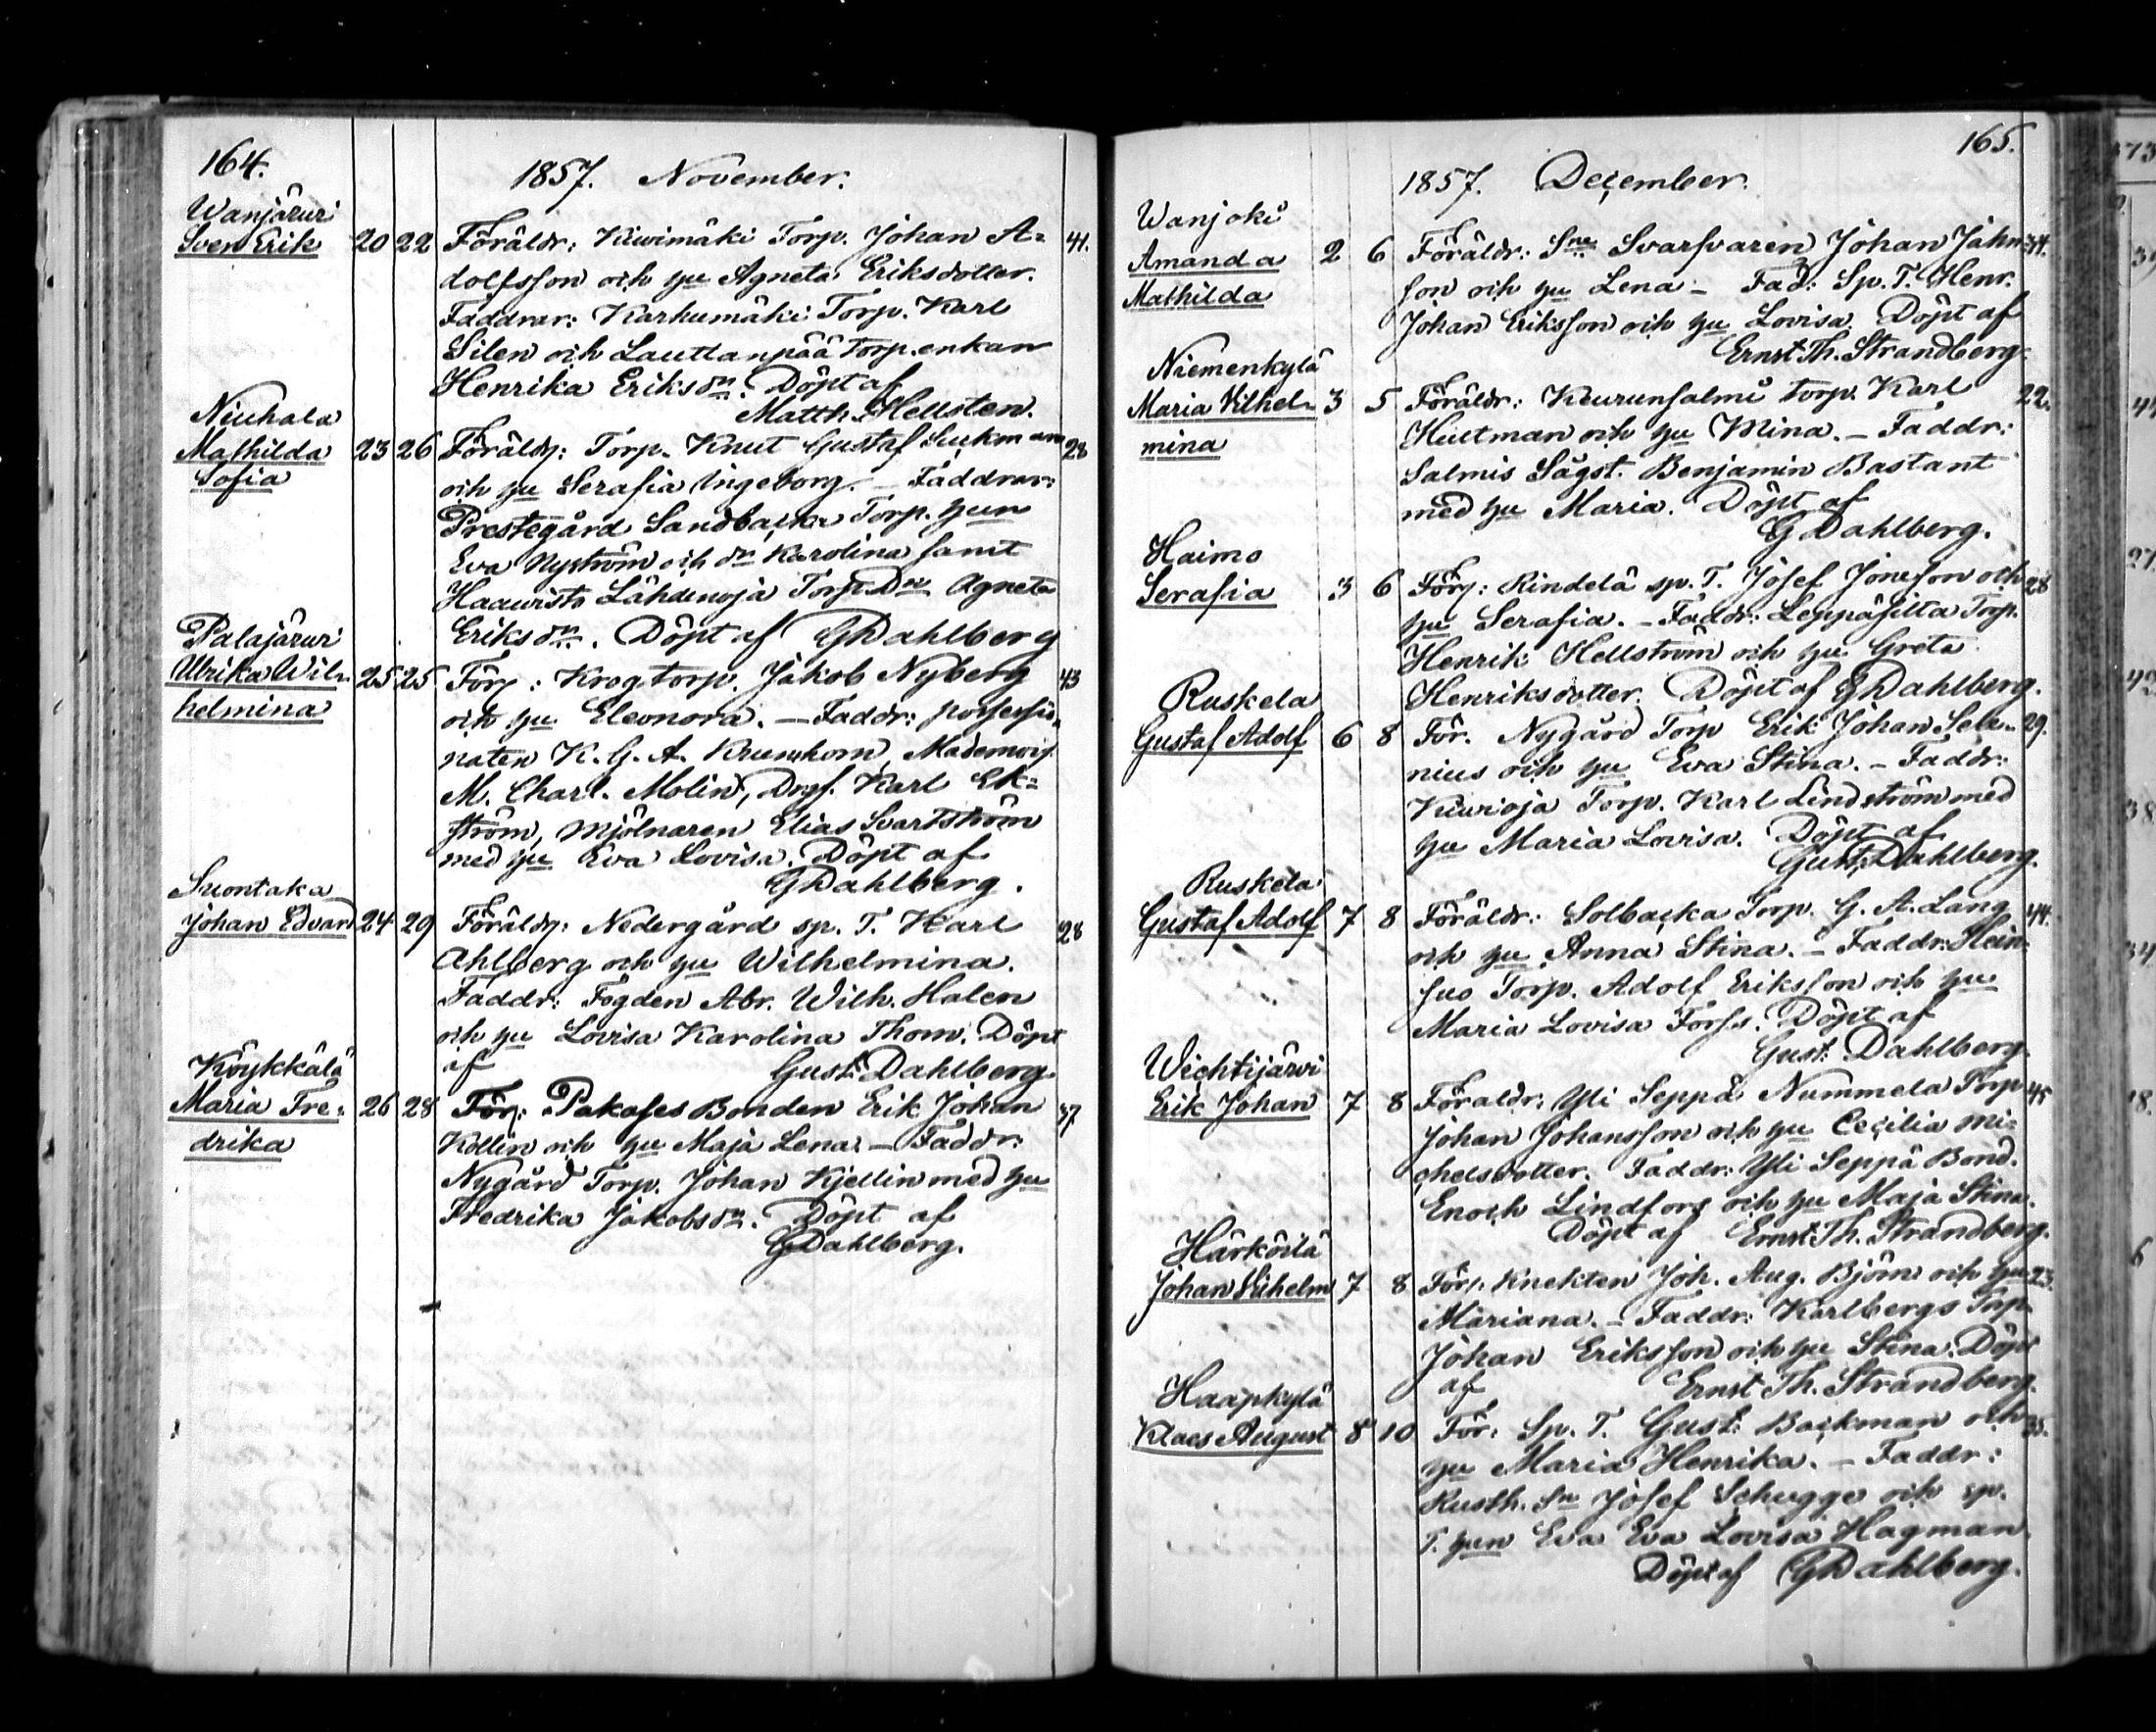 164.
1857. November.
Wanjärwi
Sven Erik 20 22 Föräldr: Kiwimäki Torp. Johan A= 41.
dolfsson och hu Agneta Eriksdotter.
Faddrar: Karhumäki Torp. Karl
Silen och Lauttanpää torp.enkan
Henrika Eriksdr. Döpt af
Matth. Hellsten.
Niuhala
Mathilda 23 26 Föräldr: Torp. Knut Gustaf Sukman 28
Sofia
och hu Serafia Ingeborg. – Faddrar:
Prestegård Sandbacka Torp. hun
Eva Nyström och dr Karolina samt
Haawisto Lähdenoja Torp. Dr Agneta
Eriksdr. Döpt af GDahlberg
Palajärwi
Ulrika Wil= 25 25 För: Krogtorp. Jakob Nyberg 43
helmina
och hu Eleonora. – Faddr: possessio=
naten K. G. A. Krumhorn, Mademois.
M. Charl. Molin, Drgf. Karl Ek=
ström, Mjölnaren Elias Svartström
med hu Eva Lovisa. Döpt af
GDahlberg.
Suontaka
Johan Edvard 24 29 Föräldr: Nedergård sp. T. Karl 28
Ahlberg och hu Wilhelmina.
Faddr: Fogden Abr. Wilh. Halen
och hu Lovisa Karolina Thom. Döpt
af Gust. Dahlberg.
Köykkälä
Maria Fre= 26 28 För: Pakases Bonden Erik Johan 37
drika
Kollin och hu Maja Lena. – Faddr:
Nygård Torp. Johan Kjellin med hu
Fredrika Jakobsdr. Döpt af
GDahlberg.
165.
1857. December.
Wanjoki
Amanda 2 6 Föräldr: Sne Svarfvaren Johan Jahn= 34.
Mathilda
son och hu Lena – Fad: Sp. T. Henr.
Johan Eriksson och hu Lovisa. Döpt af
Ernst Th. Strandberg.
Niemenkylä
Maria Vilhel= 3 5 Föräldr: Kuurunsalmi torp. Karl 22.
mina
Hultman och hu Mina. – Faddr:
Salmis Sågst. Benjamin Bastant
med hu Maria. Döpt af
G Dahlberg.
Haimo
Serafia 3 6 För: Rindelä sp. T. Josef Joneson och 28
hu Serafia. – Faddr: Leppäsilta Torp.
Henrik Hellström och hu Greta
Henriksdotter. Döpt af GDahlberg.
Ruskela
Gustaf Adolf 6 8 För. Nygård Torp Erik Johan Sele= 29.
nius och hu Eva Stina. – Faddr:
Kiwioja Torp. Karl Lindström med
hu Maria Lovisa. Döpt af
Gust. Dahlberg.
Ruskela
Gustaf Adolf 7 8 Föräldr: Solbacka Torp. G. A. Lang 44.
och hu Anna Stina. – Faddr: Hein=
suo Torp. Adolf Eriksson och hu
Maria Lovisa Forss. Döpt af
Gust. Dahlberg.
Wichtijärwi
Erik Johan 7 8 Föraldr: Yli Seppä Nummela Torp 45
Johan Johansson och hu Cecilia Mi=
chelsdotter. Faddr: Yli Seppä Bond.
Enoch Lindfors och hu Maja Stina.
Döpt af Ernst Th. Strandberg.
Härköilä
Johan Vilhelm 7 8 För. Knekten Joh. Aug. Björn och hu 23.
Mariana. – Faddr: Karlbergs Torp.
Johan Eriksson och hu Stina. Döpt
af Ernst Th. Strandberg.
Haapkylä
Klaes August 8 10 För: Sp. T. Gust. Backman och 35.
hu Maria Henrika. – Faddr:
Rusth. Sn Josef Schugge och sp.
T. hun Eva Eva Lovisa Hagman
Döpt af GDahlberg.